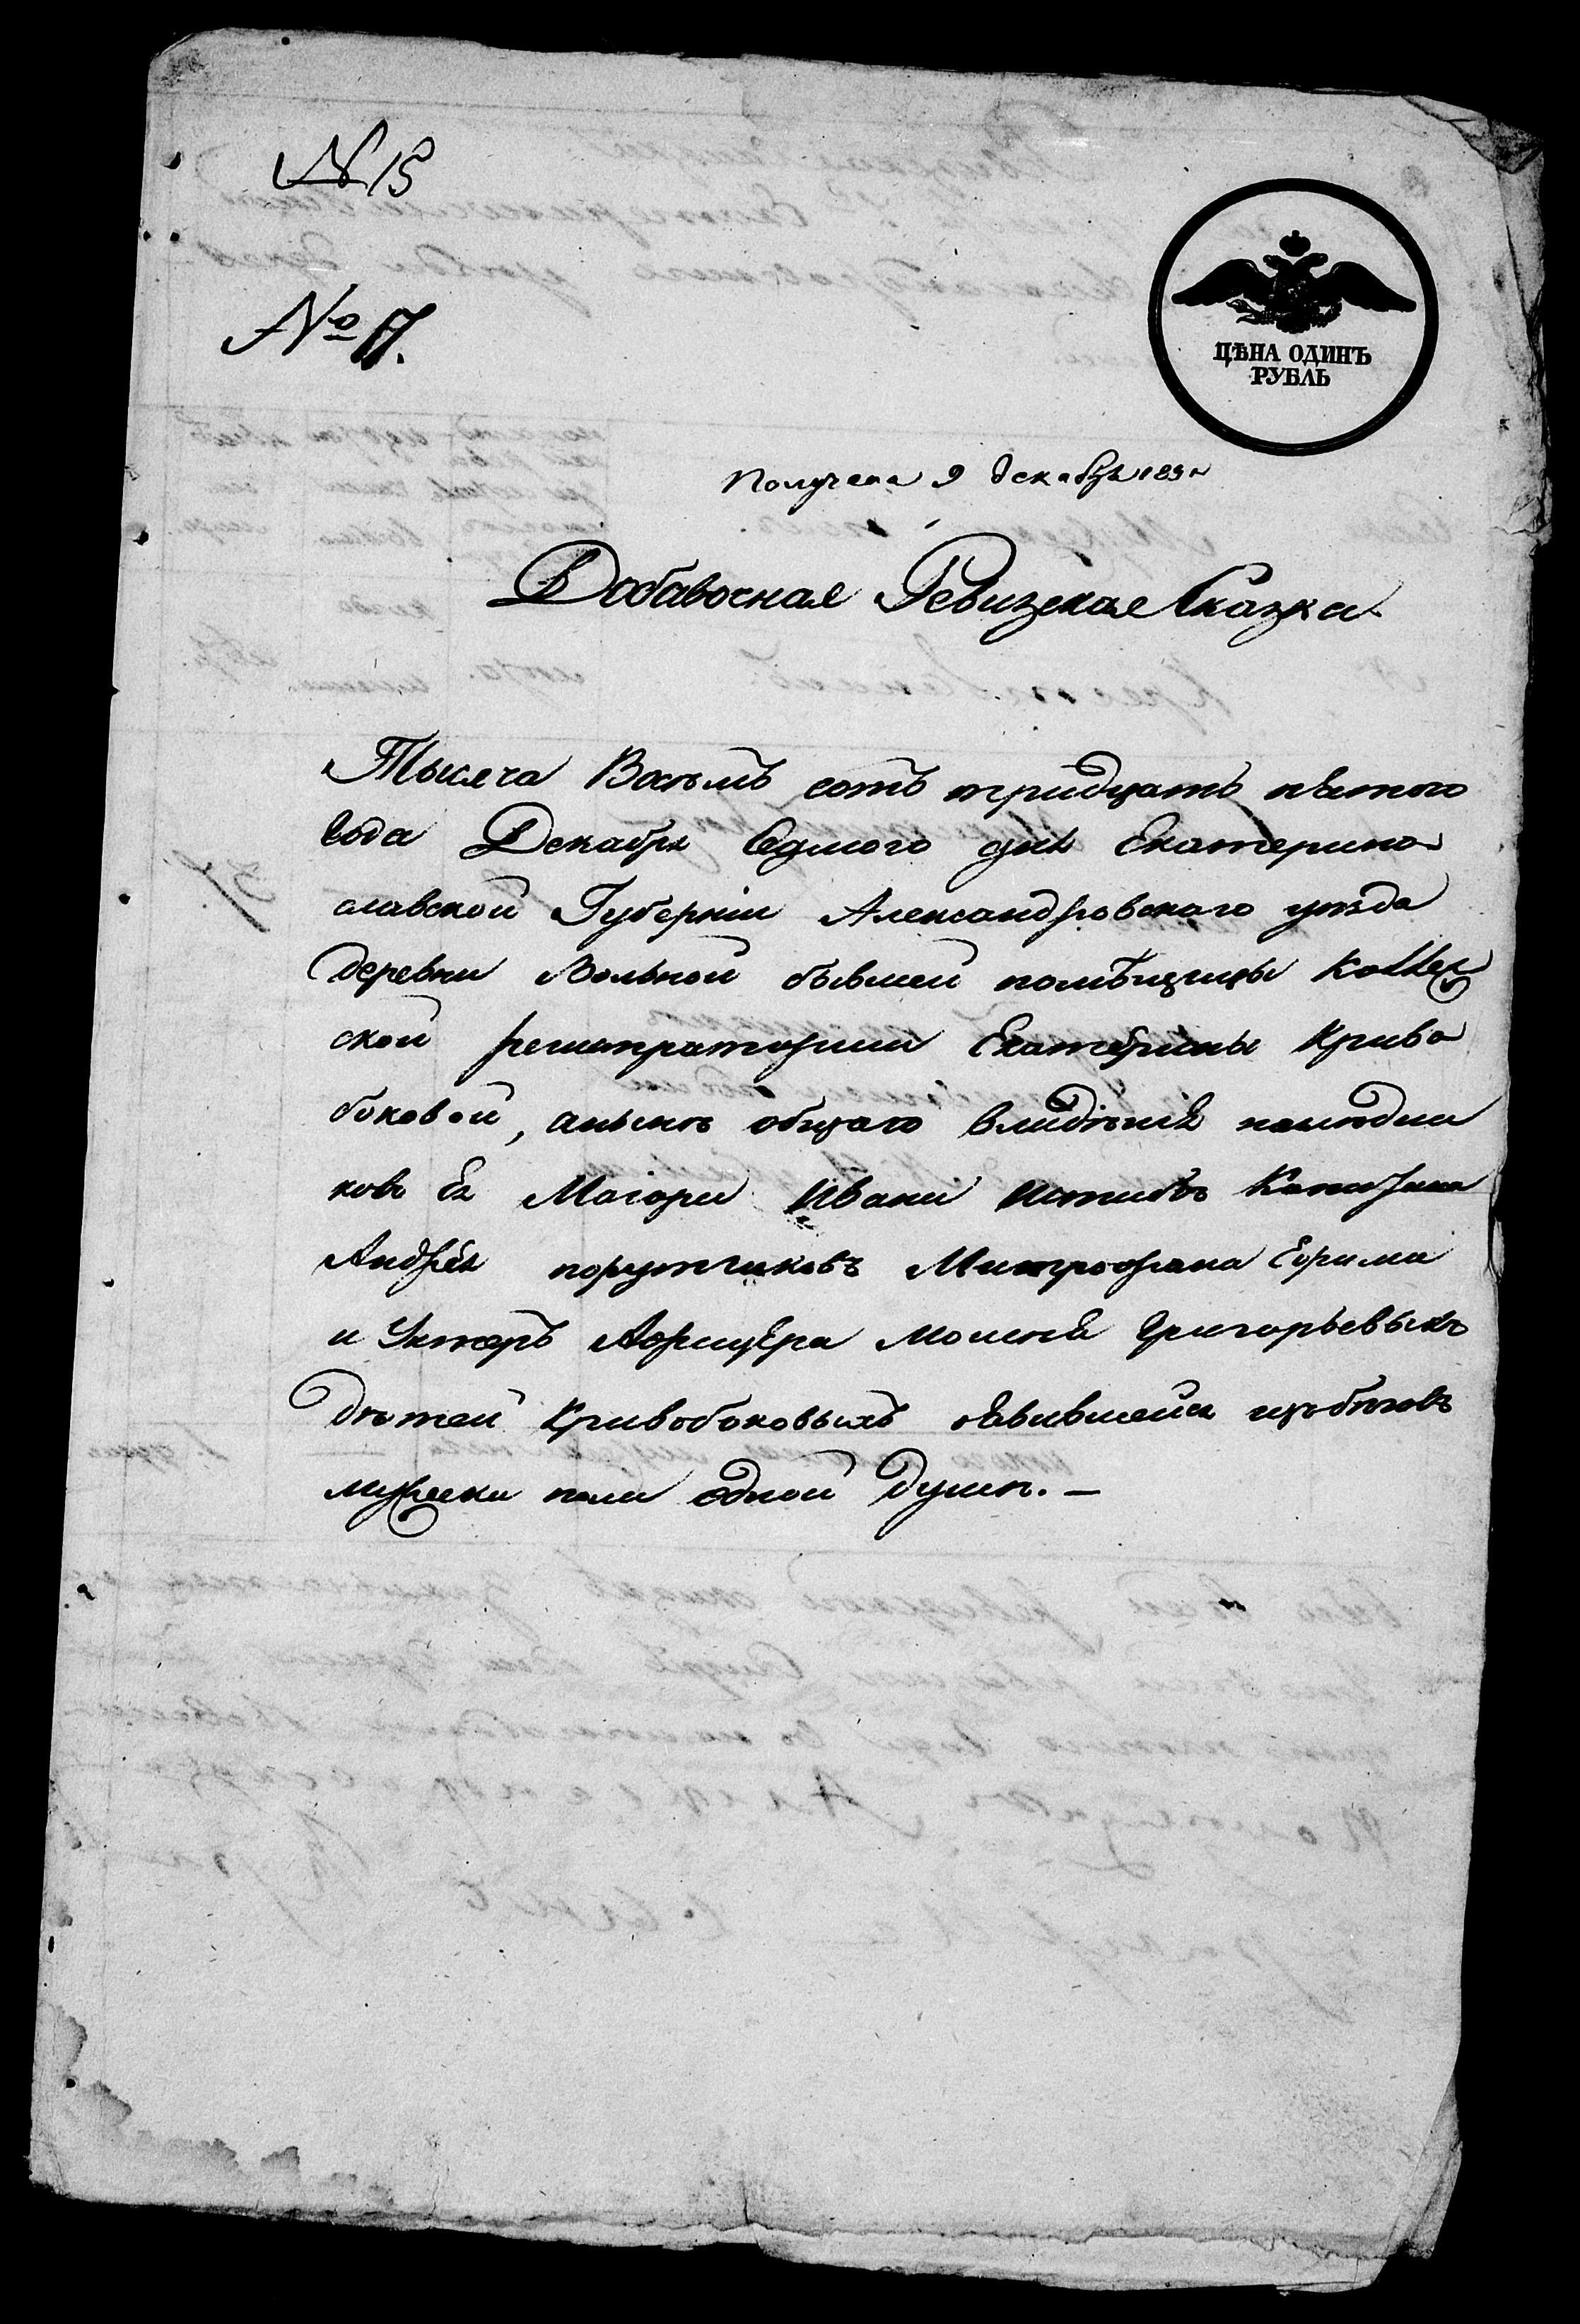 № 15
№ 17.
ЦѢНА ОДИНЪ
РУБЛЬ
Получена 9 декабря 183
Добавочная Ревизская Сказка
Тысяча Восемъ сотъ тридцать пятого
года Декабря Седмого дня Екатерино
славской Губерніи Александровского уезда
деревни Вольной бывшей помѣщицы Коллеж
ской регистраторши Екатерины Криво
боковой, аныне общаго владѣнія наследни
ковъ Ея Маіора Ивана Капитана
Андрѣя порутчиковъ Митрофана Ефима
и Унтеръ Афицера Моисѣя Григорьевыхъ
дѣтей Кривобоковыхъ оявившейся изъбѣговъ
мужеска пола одной душѣ. —